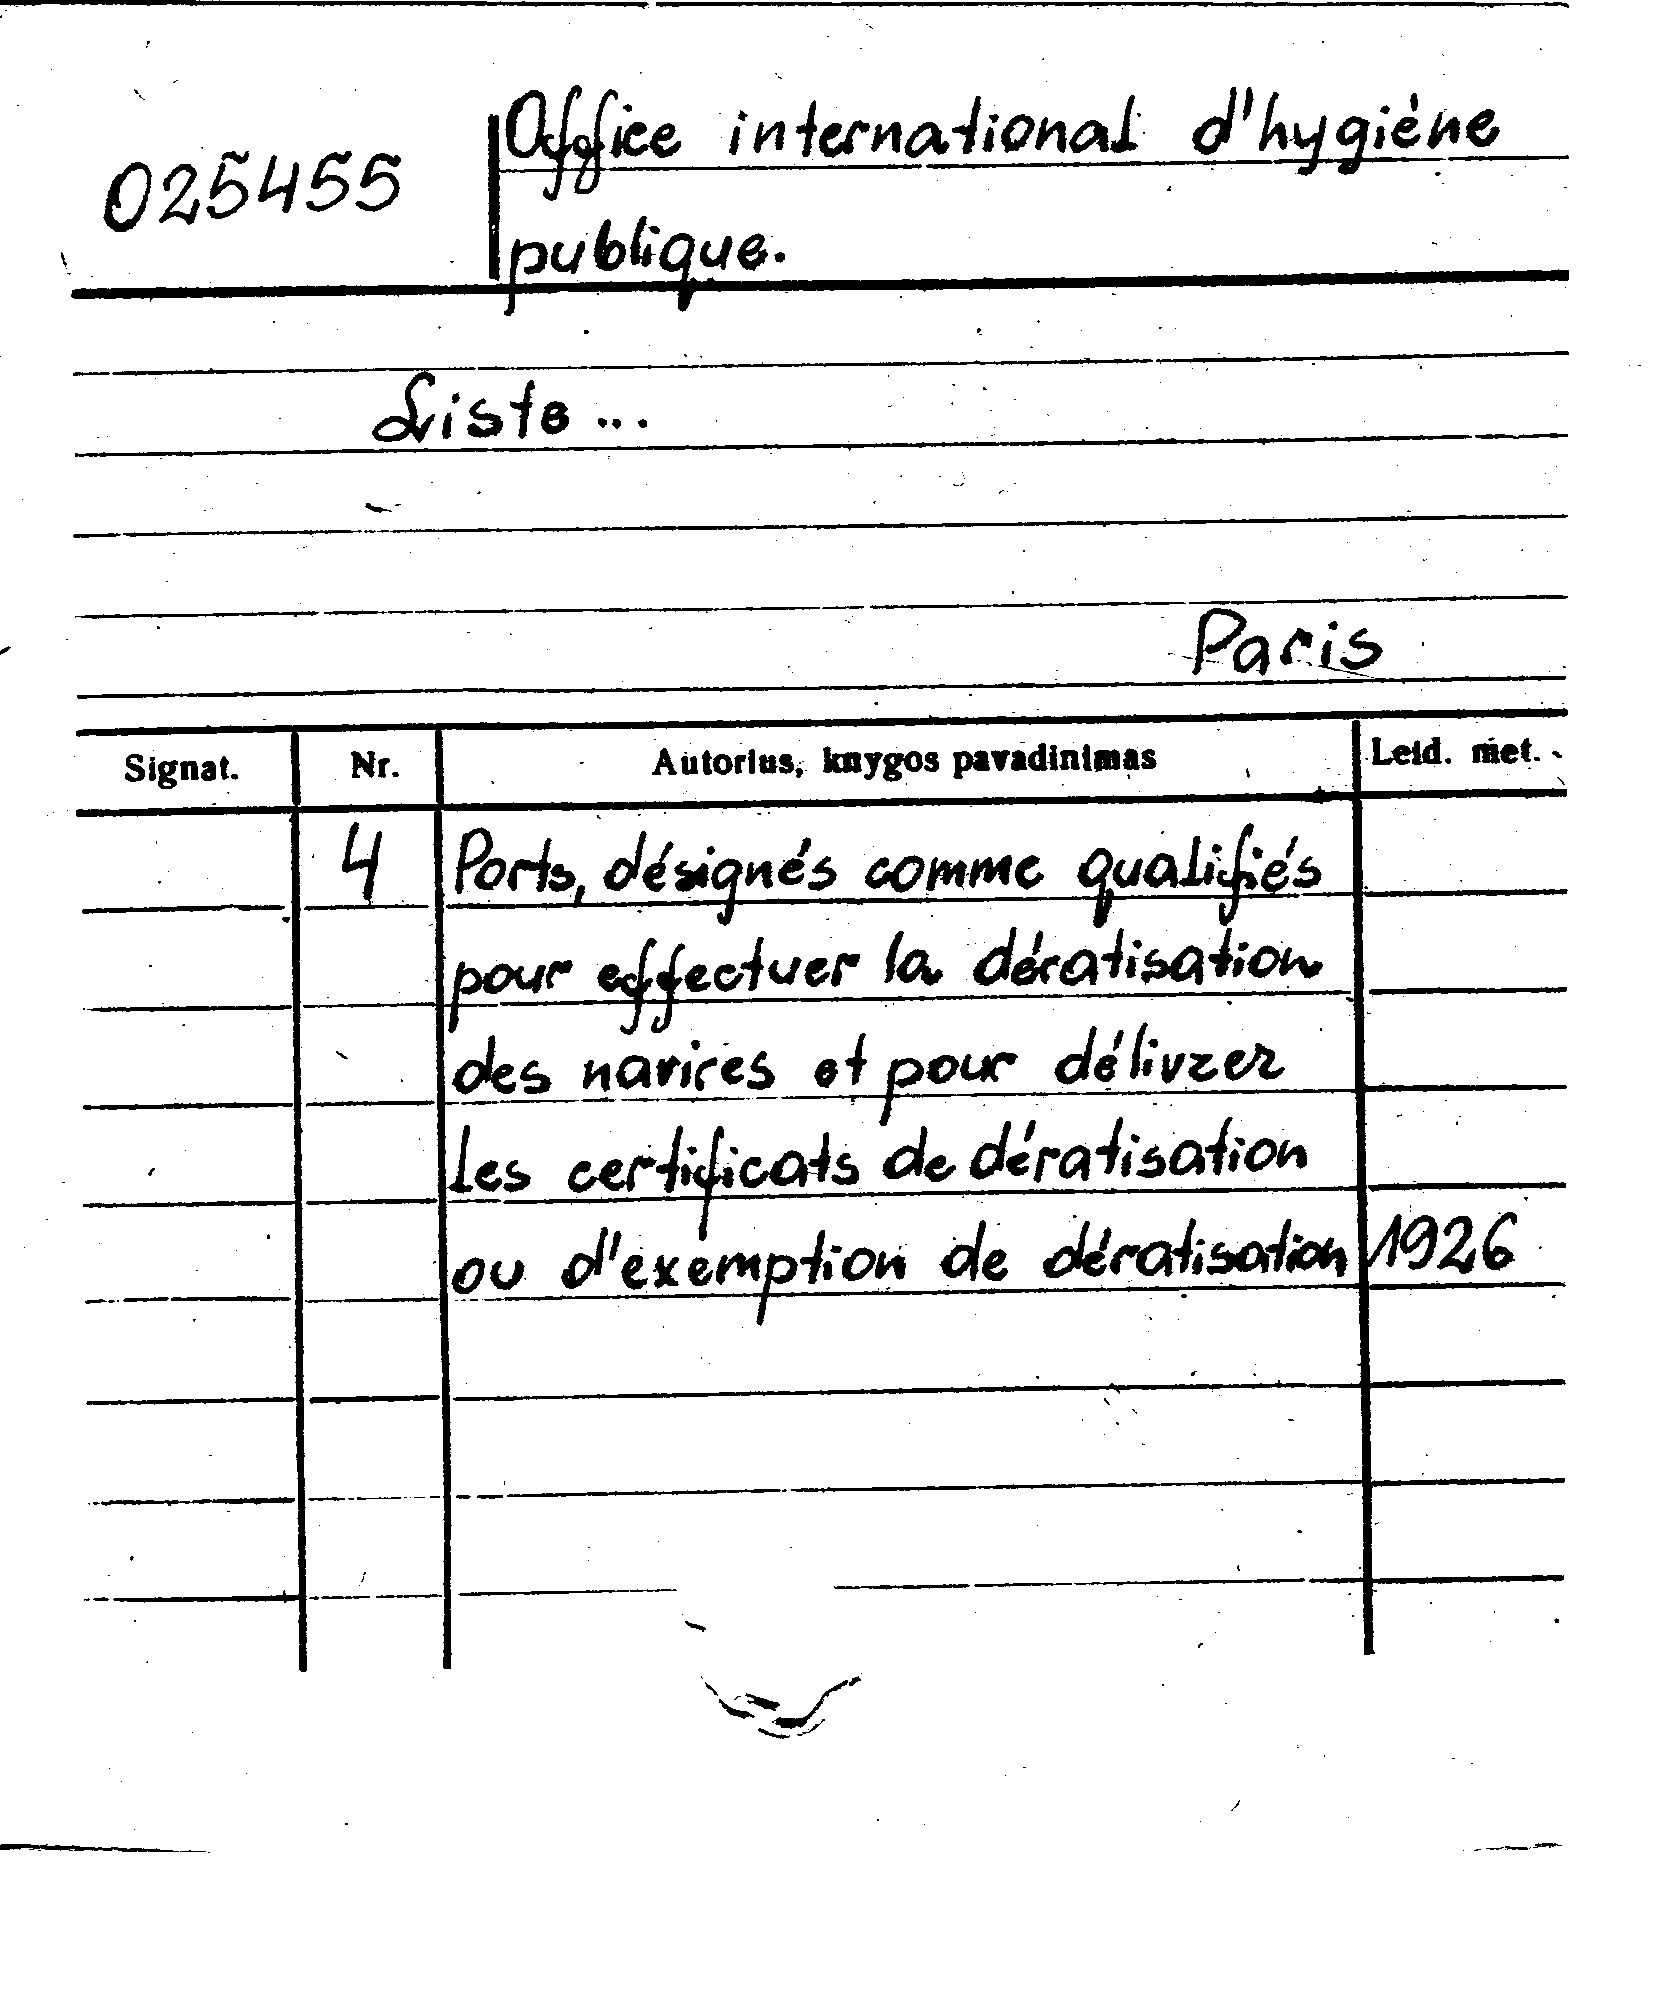 Office international d'hygiéne
025455
publique.
Liste...
Paris
Signat. Nr. Autorius, knygos pavadinimas Leid. met.
4 Ports, désignés comme qualifiés
pour effectuer la dératisation
des navires et pour délivrer
les certificats de dératisation
ou d'exemption de dératisation 1926